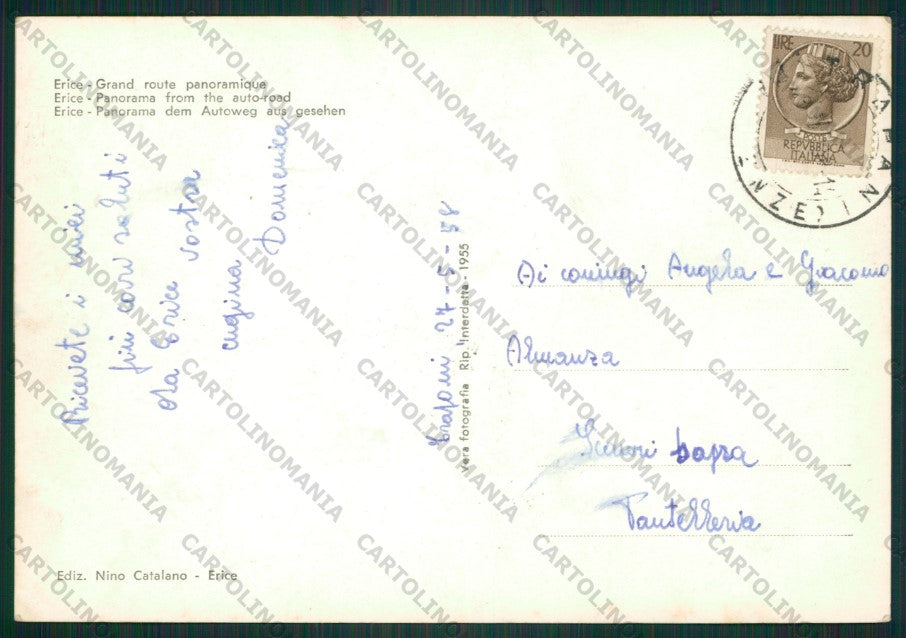 Erice - Grand route panoramique
Erice - Panorama from the auto-road
Erice - Panorama dem Autoweg aus gesehen
Ricevete i miei
più cari saluti
da Erice vostra
cugina Domenica
Trapani 27-5-58
Vera fotografia Rip. Interdetta - 1955
LIRE 20
REPVBBLICA
ITALIANA
TRAPANI
Ai coniugi Angela e Giacomo
Almanza
sopra
Pantelleria
Ediz. Nino Catalano - Erice
CARTOLINOMANIA